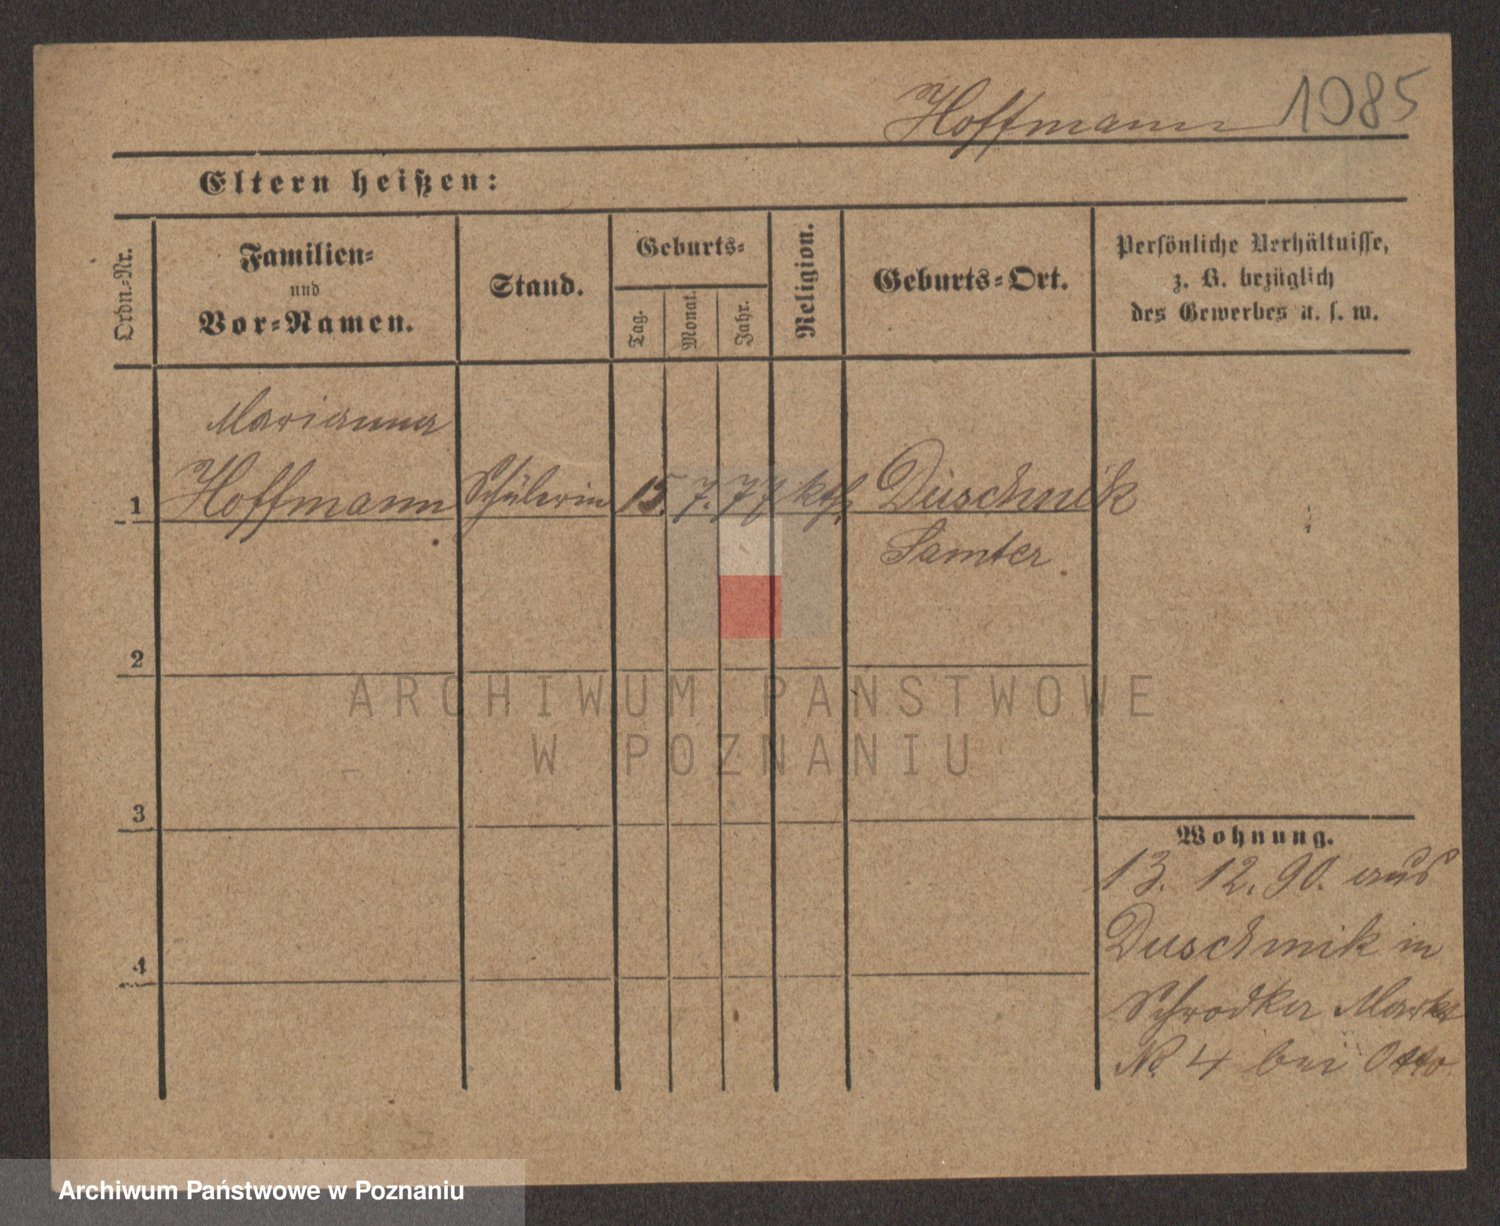 Hoffmann 1085
Eltern heißen:
Ordn.-Nr.
Familien-
und
Vor-Namen.
Stand.
Geburts-
Tag.
Monat.
Jahr.
Religion.
Geburts-Ort.
Persönliche Verhältnisse,
z. B. bezüglich
des Gewerbes u. s. w.
Marianna
1 Hoffmann Schülerin 15. 7. 77 kth. Duschnik
Samter.
2
3
4
Wohnung.
13. 12. 90. aus
Duschnik in
Schrodka Markt
No. 4 bei Otto
ARCHIWUM PAŃSTWOWE
W POZNANIU
Archiwum Państwowe w Poznaniu